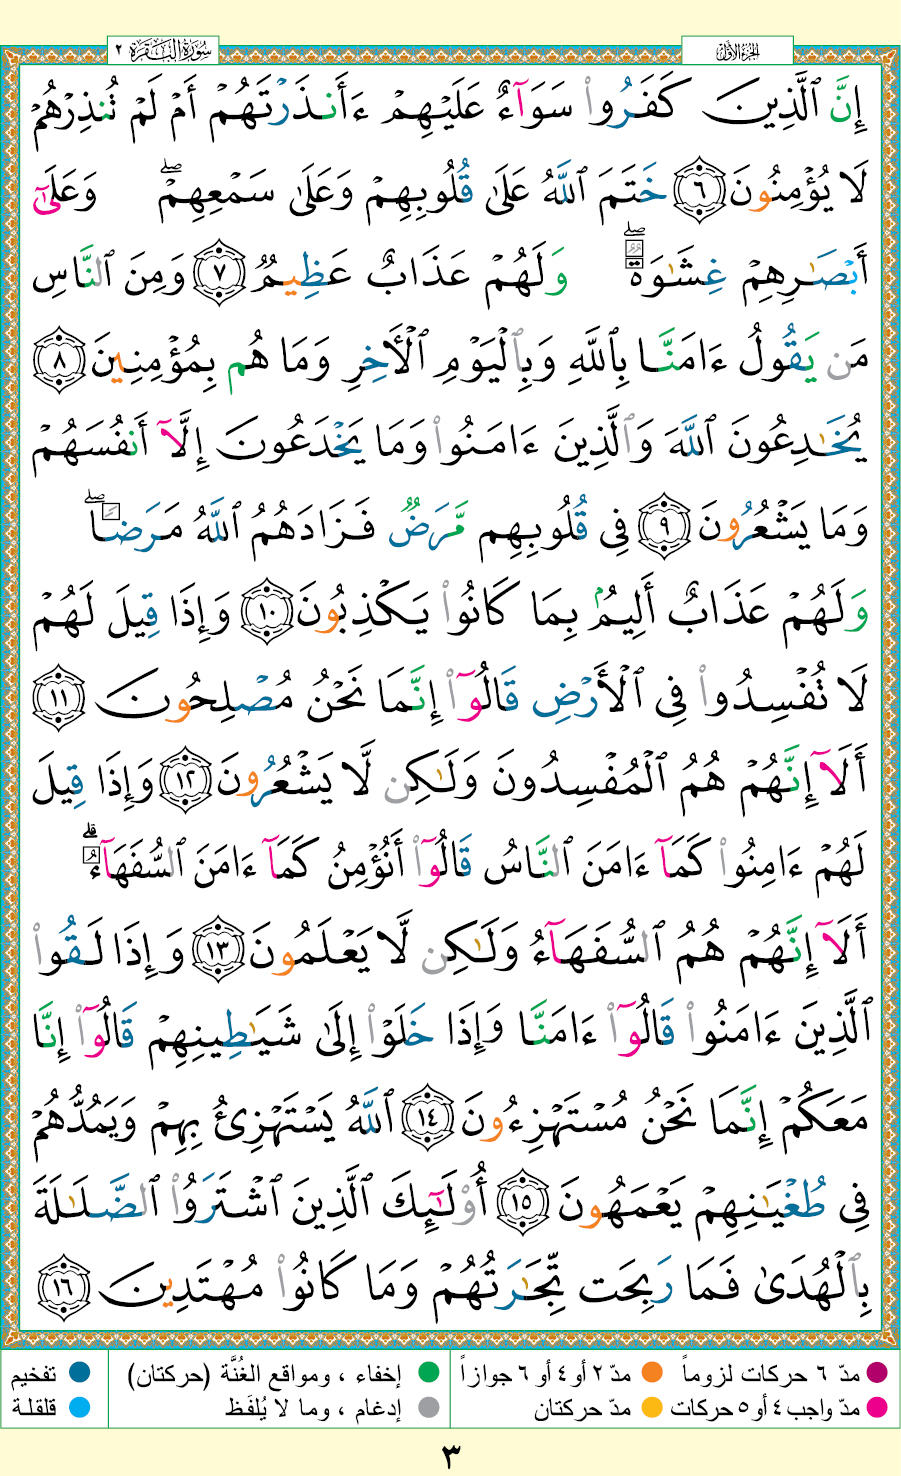 سُورَةُ البَقَرَة ٢
الجُزءُ الأوّل
إِنَّ ٱلَّذِينَ كَفَرُوا۟ سَوَآءٌ عَلَيْهِمْ ءَأَنذَرْتَهُمْ أَمْ لَمْ تُنذِرْهُمْ
لَا يُؤْمِنُونَ ٦ خَتَمَ ٱللَّهُ عَلَىٰ قُلُوبِهِمْ وَعَلَىٰ سَمْعِهِمْ ۖ وَعَلَىٰٓ
أَبْصَـٰرِهِمْ غِشَـٰوَةٌ ۖ وَلَهُمْ عَذَابٌ عَظِيمٌ ٧ وَمِنَ ٱلنَّاسِ
مَن يَقُولُ ءَامَنَّا بِٱللَّهِ وَبِٱلْيَوْمِ ٱلْـَٔاخِرِ وَمَا هُم بِمُؤْمِنِينَ ٨
يُخَـٰدِعُونَ ٱللَّهَ وَٱلَّذِينَ ءَامَنُوا۟ وَمَا يَخْدَعُونَ إِلَّآ أَنفُسَهُمْ
وَمَا يَشْعُرُونَ ٩ فِى قُلُوبِهِم مَّرَضٌ فَزَادَهُمُ ٱللَّهُ مَرَضًا ۖ
وَلَهُمْ عَذَابٌ أَلِيمٌۢ بِمَا كَانُوا۟ يَكْذِبُونَ ١٠ وَإِذَا قِيلَ لَهُمْ
لَا تُفْسِدُوا۟ فِى ٱلْأَرْضِ قَالُوٓا۟ إِنَّمَا نَحْنُ مُصْلِحُونَ ١١
أَلَآ إِنَّهُمْ هُمُ ٱلْمُفْسِدُونَ وَلَـٰكِن لَّا يَشْعُرُونَ ١٢ وَإِذَا قِيلَ
لَهُمْ ءَامِنُوا۟ كَمَآ ءَامَنَ ٱلنَّاسُ قَالُوٓا۟ أَنُؤْمِنُ كَمَآ ءَامَنَ ٱلسُّفَهَآءُ ۗ
أَلَآ إِنَّهُمْ هُمُ ٱلسُّفَهَآءُ وَلَـٰكِن لَّا يَعْلَمُونَ ١٣ وَإِذَا لَقُوا۟
ٱلَّذِينَ ءَامَنُوا۟ قَالُوٓا۟ ءَامَنَّا وَإِذَا خَلَوْا۟ إِلَىٰ شَيَـٰطِينِهِمْ قَالُوٓا۟ إِنَّا
مَعَكُمْ إِنَّمَا نَحْنُ مُسْتَهْزِءُونَ ١٤ ٱللَّهُ يَسْتَهْزِئُ بِهِمْ وَيَمُدُّهُمْ
فِى طُغْيَـٰنِهِمْ يَعْمَهُونَ ١٥ أُو۟لَـٰٓئِكَ ٱلَّذِينَ ٱشْتَرَوُا۟ ٱلضَّلَـٰلَةَ
بِٱلْهُدَىٰ فَمَا رَبِحَت تِّجَـٰرَتُهُمْ وَمَا كَانُوا۟ مُهْتَدِينَ ١٦
مدّ ٦ حركات لزوماً مدّ ٢ أو ٤ أو ٦ جوازاً إخفاء ، ومواقع الغُنَّة (حركتان) تفخيم
مدّ واجب ٤ أو ٥ حركات مدّ حركتان إدغام ، وما لا يُلفَظ قلقلة
٣